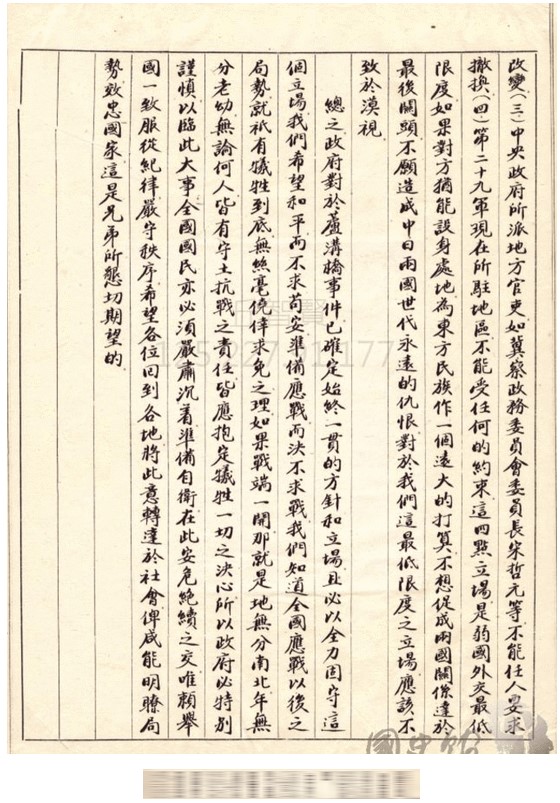 改變(三)中央政府所派地方官吏如冀察政務委員會委員長宋哲元等不能任人要求
撤換(四)第二十九軍現在所駐地區不能受任何的約束這四點立場是弱國外交最低
限度如果對方猶能設身處地為東方民族作一個遠大的打算不想促成兩國關係達於
最後關頭不願造成中日兩國世代永遠的仇恨對於我們這最低限度之立場應該不
致於漠視
總之政府對於蘆溝橋事件已確定始終一貫的方針和立場且必以全力固守這
個立場我們希望和平而不求苟安準備應戰而決不求戰我們知道全國應戰以後之
局勢就祇有犧牲到底無絲毫僥倖求免之理如果戰端一開那就是地無分南北年無
分老幼無論何人皆有守土抗戰之責任皆應抱定犧牲一切之決心所以政府必特別
謹慎以臨此大事全國國民亦必須嚴肅沉着準備自衛在此安危絕續之交唯賴舉
國一致服從紀律嚴守秩序希望各位回到各地將此意轉達於社會俾咸能明瞭局
勢效忠國家這是兄弟所懇切期望的
國史館